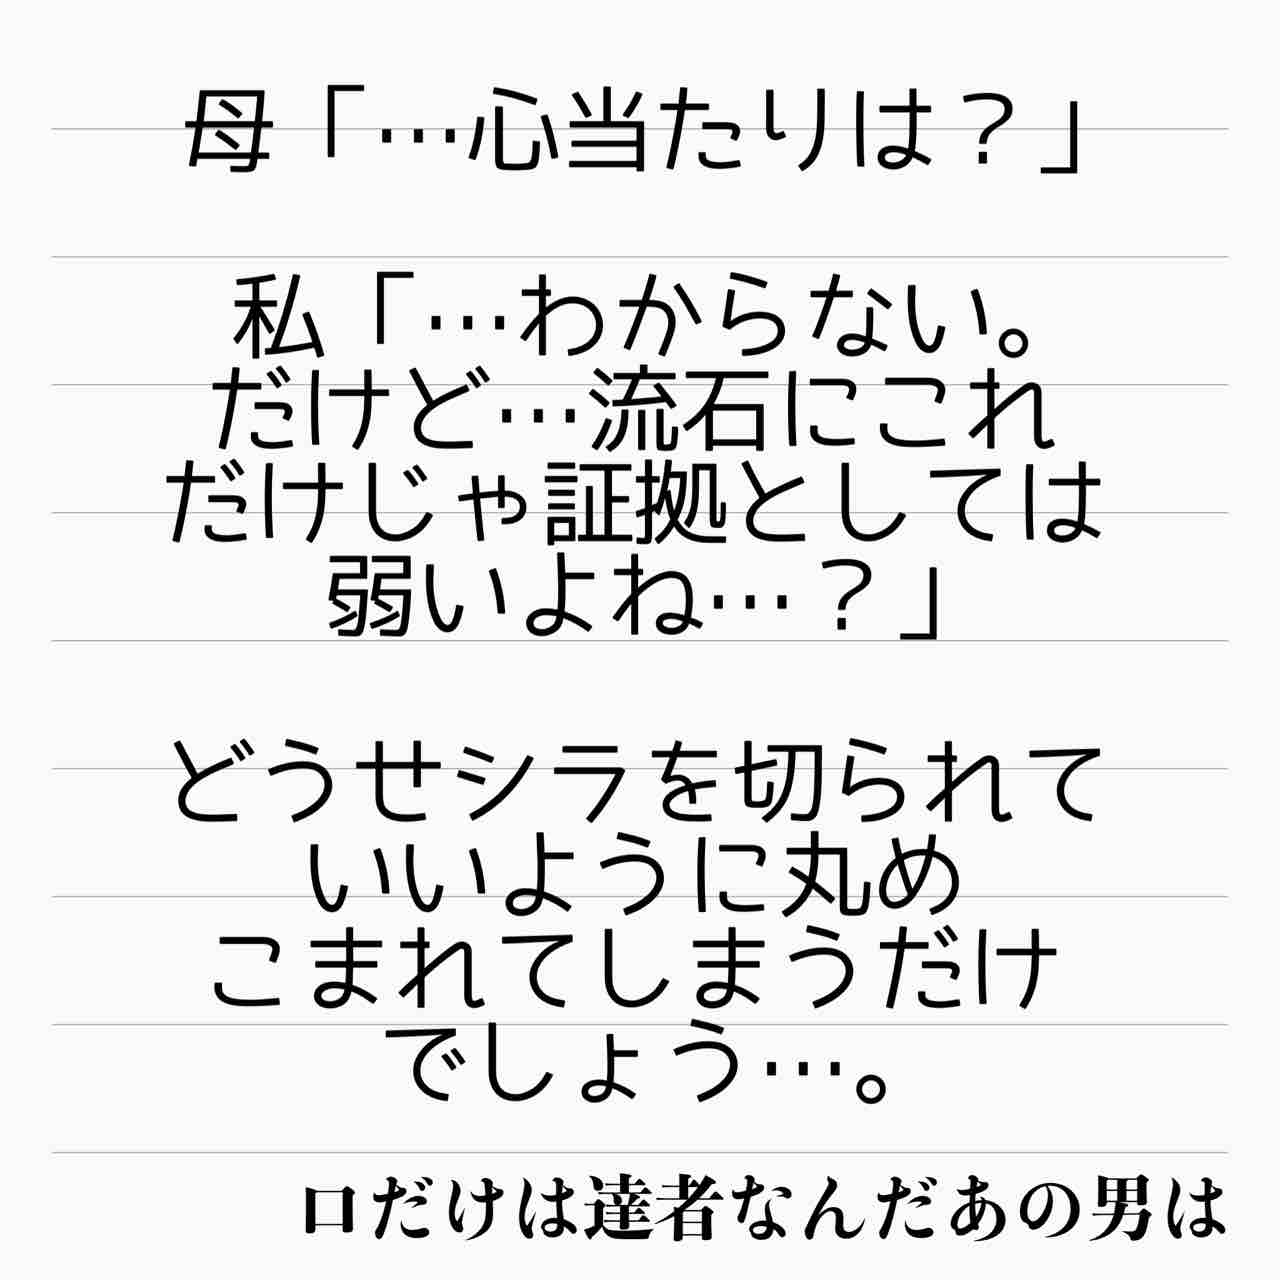 母「…心当たりは？」
私「…わからない。
だけど…流石にこれ
だけじゃ証拠としては
弱いよね…？」
どうせシラを切られて
いいように丸め
こまれてしまうだけ
でしょう…。
口だけは達者なんだあの男は